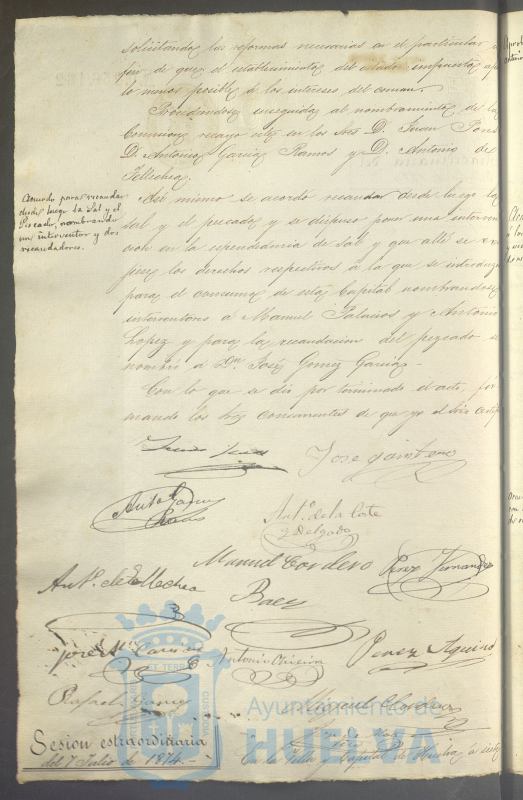 solicitando las reformas necesarias en el particular a
fin de que el establecimiento del citado impuesto afecte
lo menos posible á los intereses del comun.
Procediendose enseguida al nombramiento de la
Comision recayó esta en los Sres D. Juan Pons
D. Antonio Garcia Ramos y D. Antonio de
Tellechea.
Acuerdo para recaudar
desde luego la Sal y el
Pescado, nombrando
un interventor y dos
recaudadores.
Asi mismo se acordó recaudar desde luego la
sal y el pescado y se dispuso poner una interven
cion en la espendeduria de Sal y que alli se
los derechos respectivos á la que se introduzca
para el consumo de esta Capital nombrandose
interventores á Manuel Palacios y Antonio
Lopez y para la recaudacion del pescado se
nombró á Dn José Gomez Garcia.
Con lo que se dió por terminado el acto, fir
mando los Sres concurrentes de que yo el Srio certifº
Juan
José Quintero
Antº Garcia
Ramos
Antº de la Corte
y Delgado
Manuel Cordero
Perez Fernandez
Antº de Tellechea
Baez
José Mª
Antonio
Perez Aquino
Rafael Garcia
Manuel
Ayuntamiento de
HUELVA
Sesion estraordinaria
del 7 Julio de 1874.
En la Villa y Capital de Huelva á siete